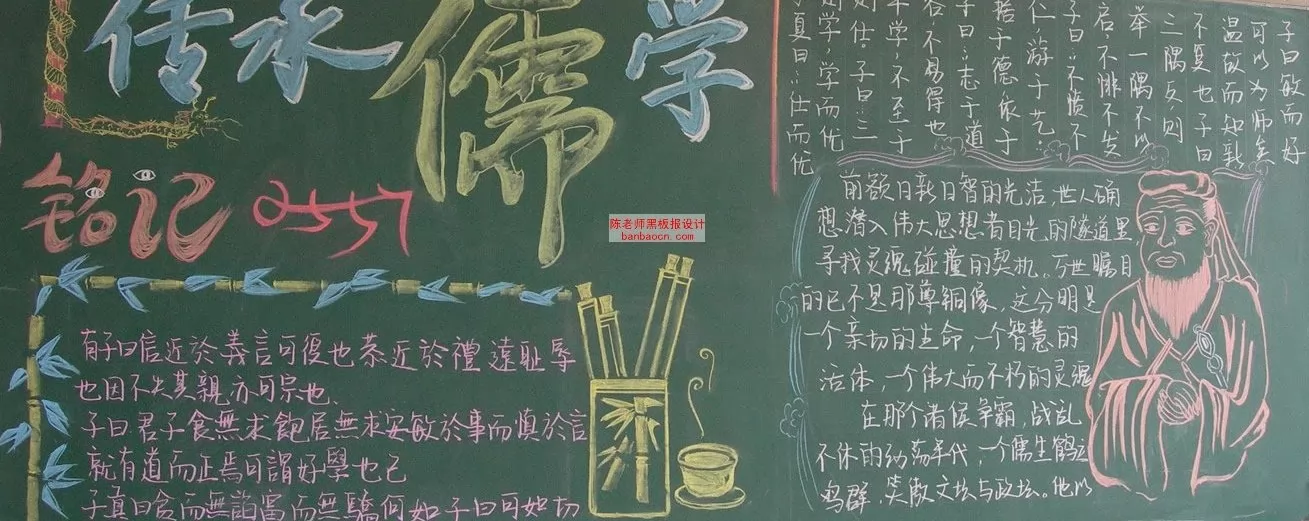 传承儒学
铭记2557
陈老师黑板报设计
banbaocn.com
有子曰信近於義言可復也恭近於禮遠耻辱
也因不失其親亦可宗也
子曰君子食無求飽居無求安敏於事而慎於言
就有道而正焉可謂好學也已
子貢曰貧而無諂富而無驕何如子曰可如切
子曰敏而好
可以为师矣
温故而知新
不复也子曰
三隅反则
举一隅不以
启不悱不发
子曰:不愤不
仁,游于艺:
据于德依于
子曰:志于道
谷不易得也
年学,不至于
则仕。子曰:三
则学,学而优
子夏曰:仕而优
前欲日新日智的光洁,世人确
想潜入伟大思想者目光的隧道里
寻找灵魂碰撞的契机。万世瞩目
的已不是那尊铜像,这分明是
一个亲切的生命,一个智慧的
活体,一个伟大而不朽的灵魂
在那个诸侯争霸,战乱
不休的动荡年代,一个儒生鹤立
鸡群,笑傲文坛与政坛。他以